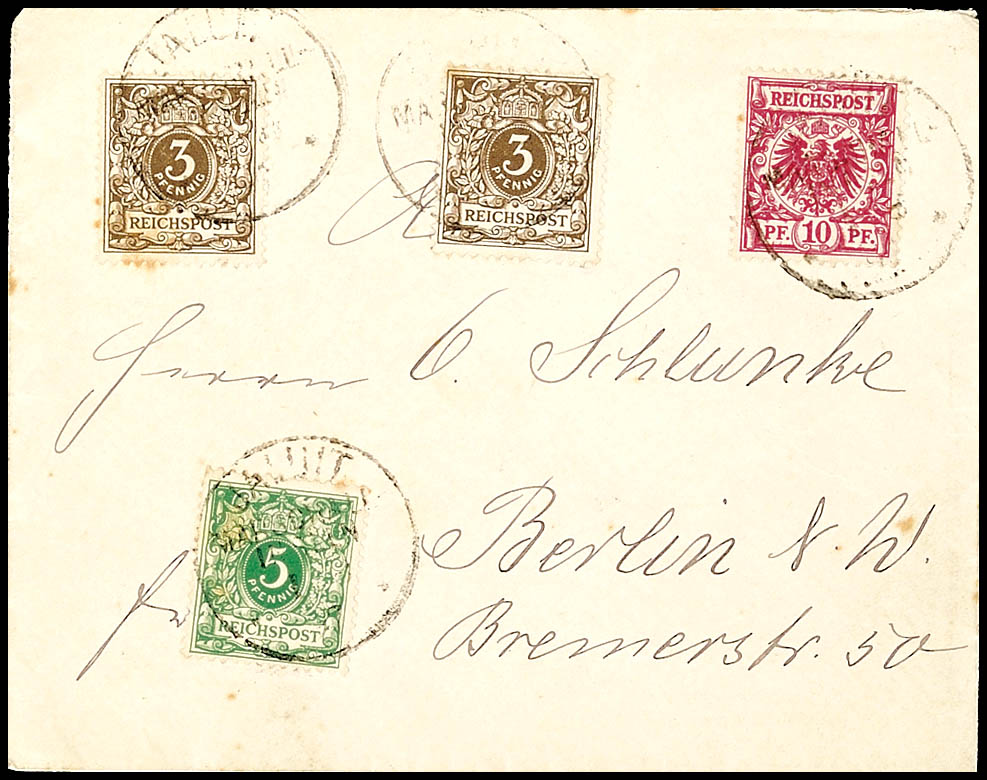 JALUIT
MAR
3
PFENNIG
REICHSPOST
MA
3
PFENNIG
REICHSPOST
REICHSPOST
PF. 10 PF.
Herrn C. Schlunke
JALUIT
MAR
5
PFENNIG
REICHSPOST
Berlin N W.
fr
Bremerstr. 50